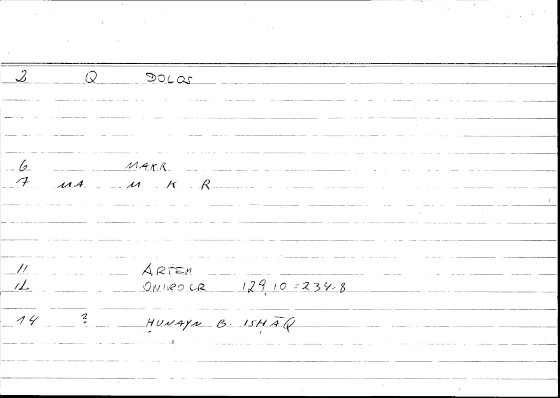 2 Q DOLOS
6 MAKR
7 MA M K R
11 ARTEM
12 ONIROCR 129,10 = 234-8
14 ? ḤUNAYN B. ISḤĀQ